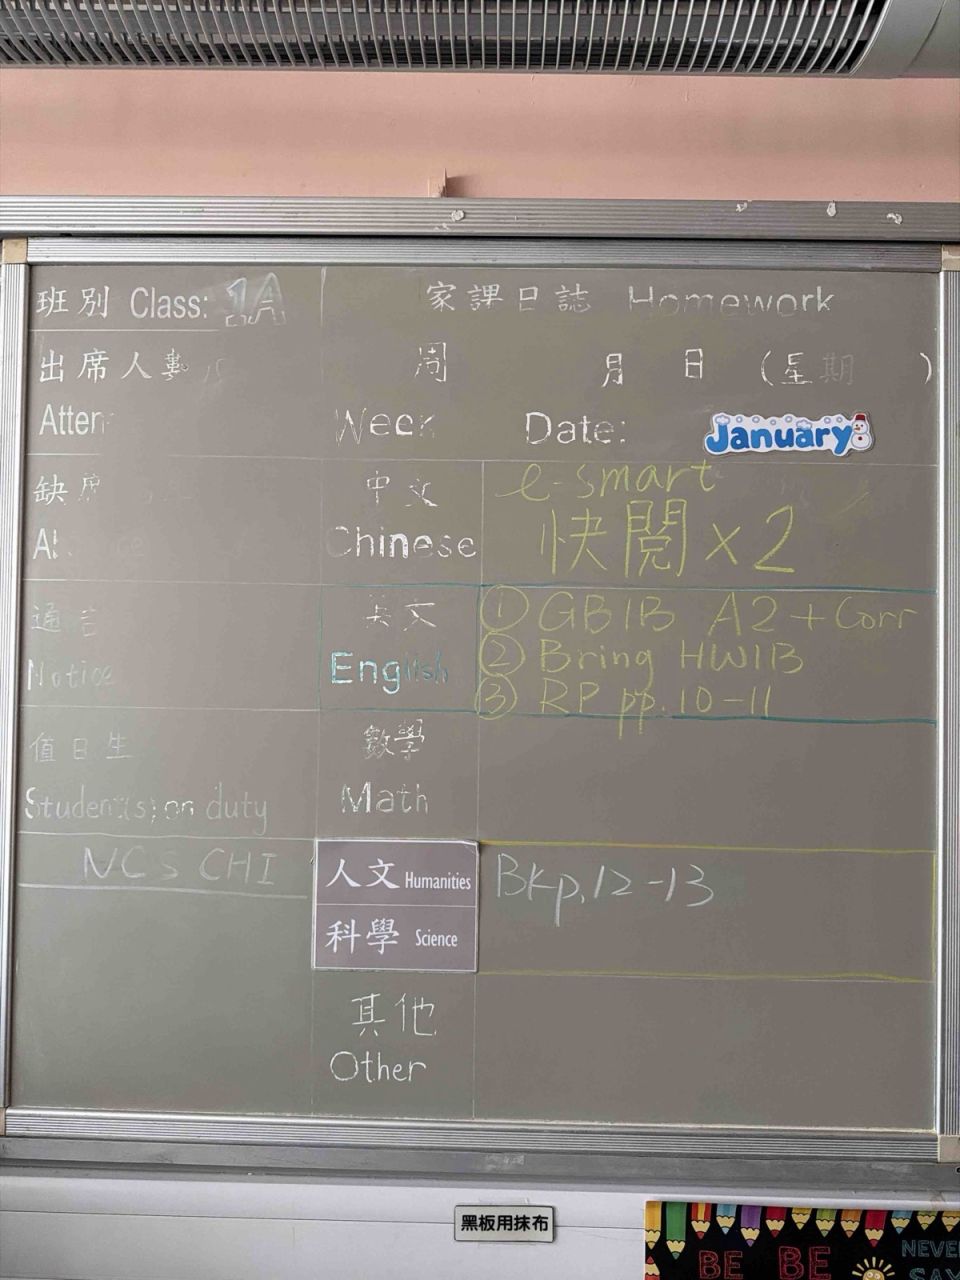 班別 Class: 1A
家課日誌 Homework
出席人數
周 月 日 (星期 )
Atten
Week Date: January
缺席
中文
Chinese
e-smart
快閱 x2
英文
English
① GB1B A2 + Corr
② Bring HW1B
③ RP pp. 10-11
Notice
值日生
Student(s) on duty
數學
Math
NCS CHI
人文 Humanities
科學 Science
Bk p. 12-13
其他
Other
黑板用抹布
BE BE
NEVE
SAY